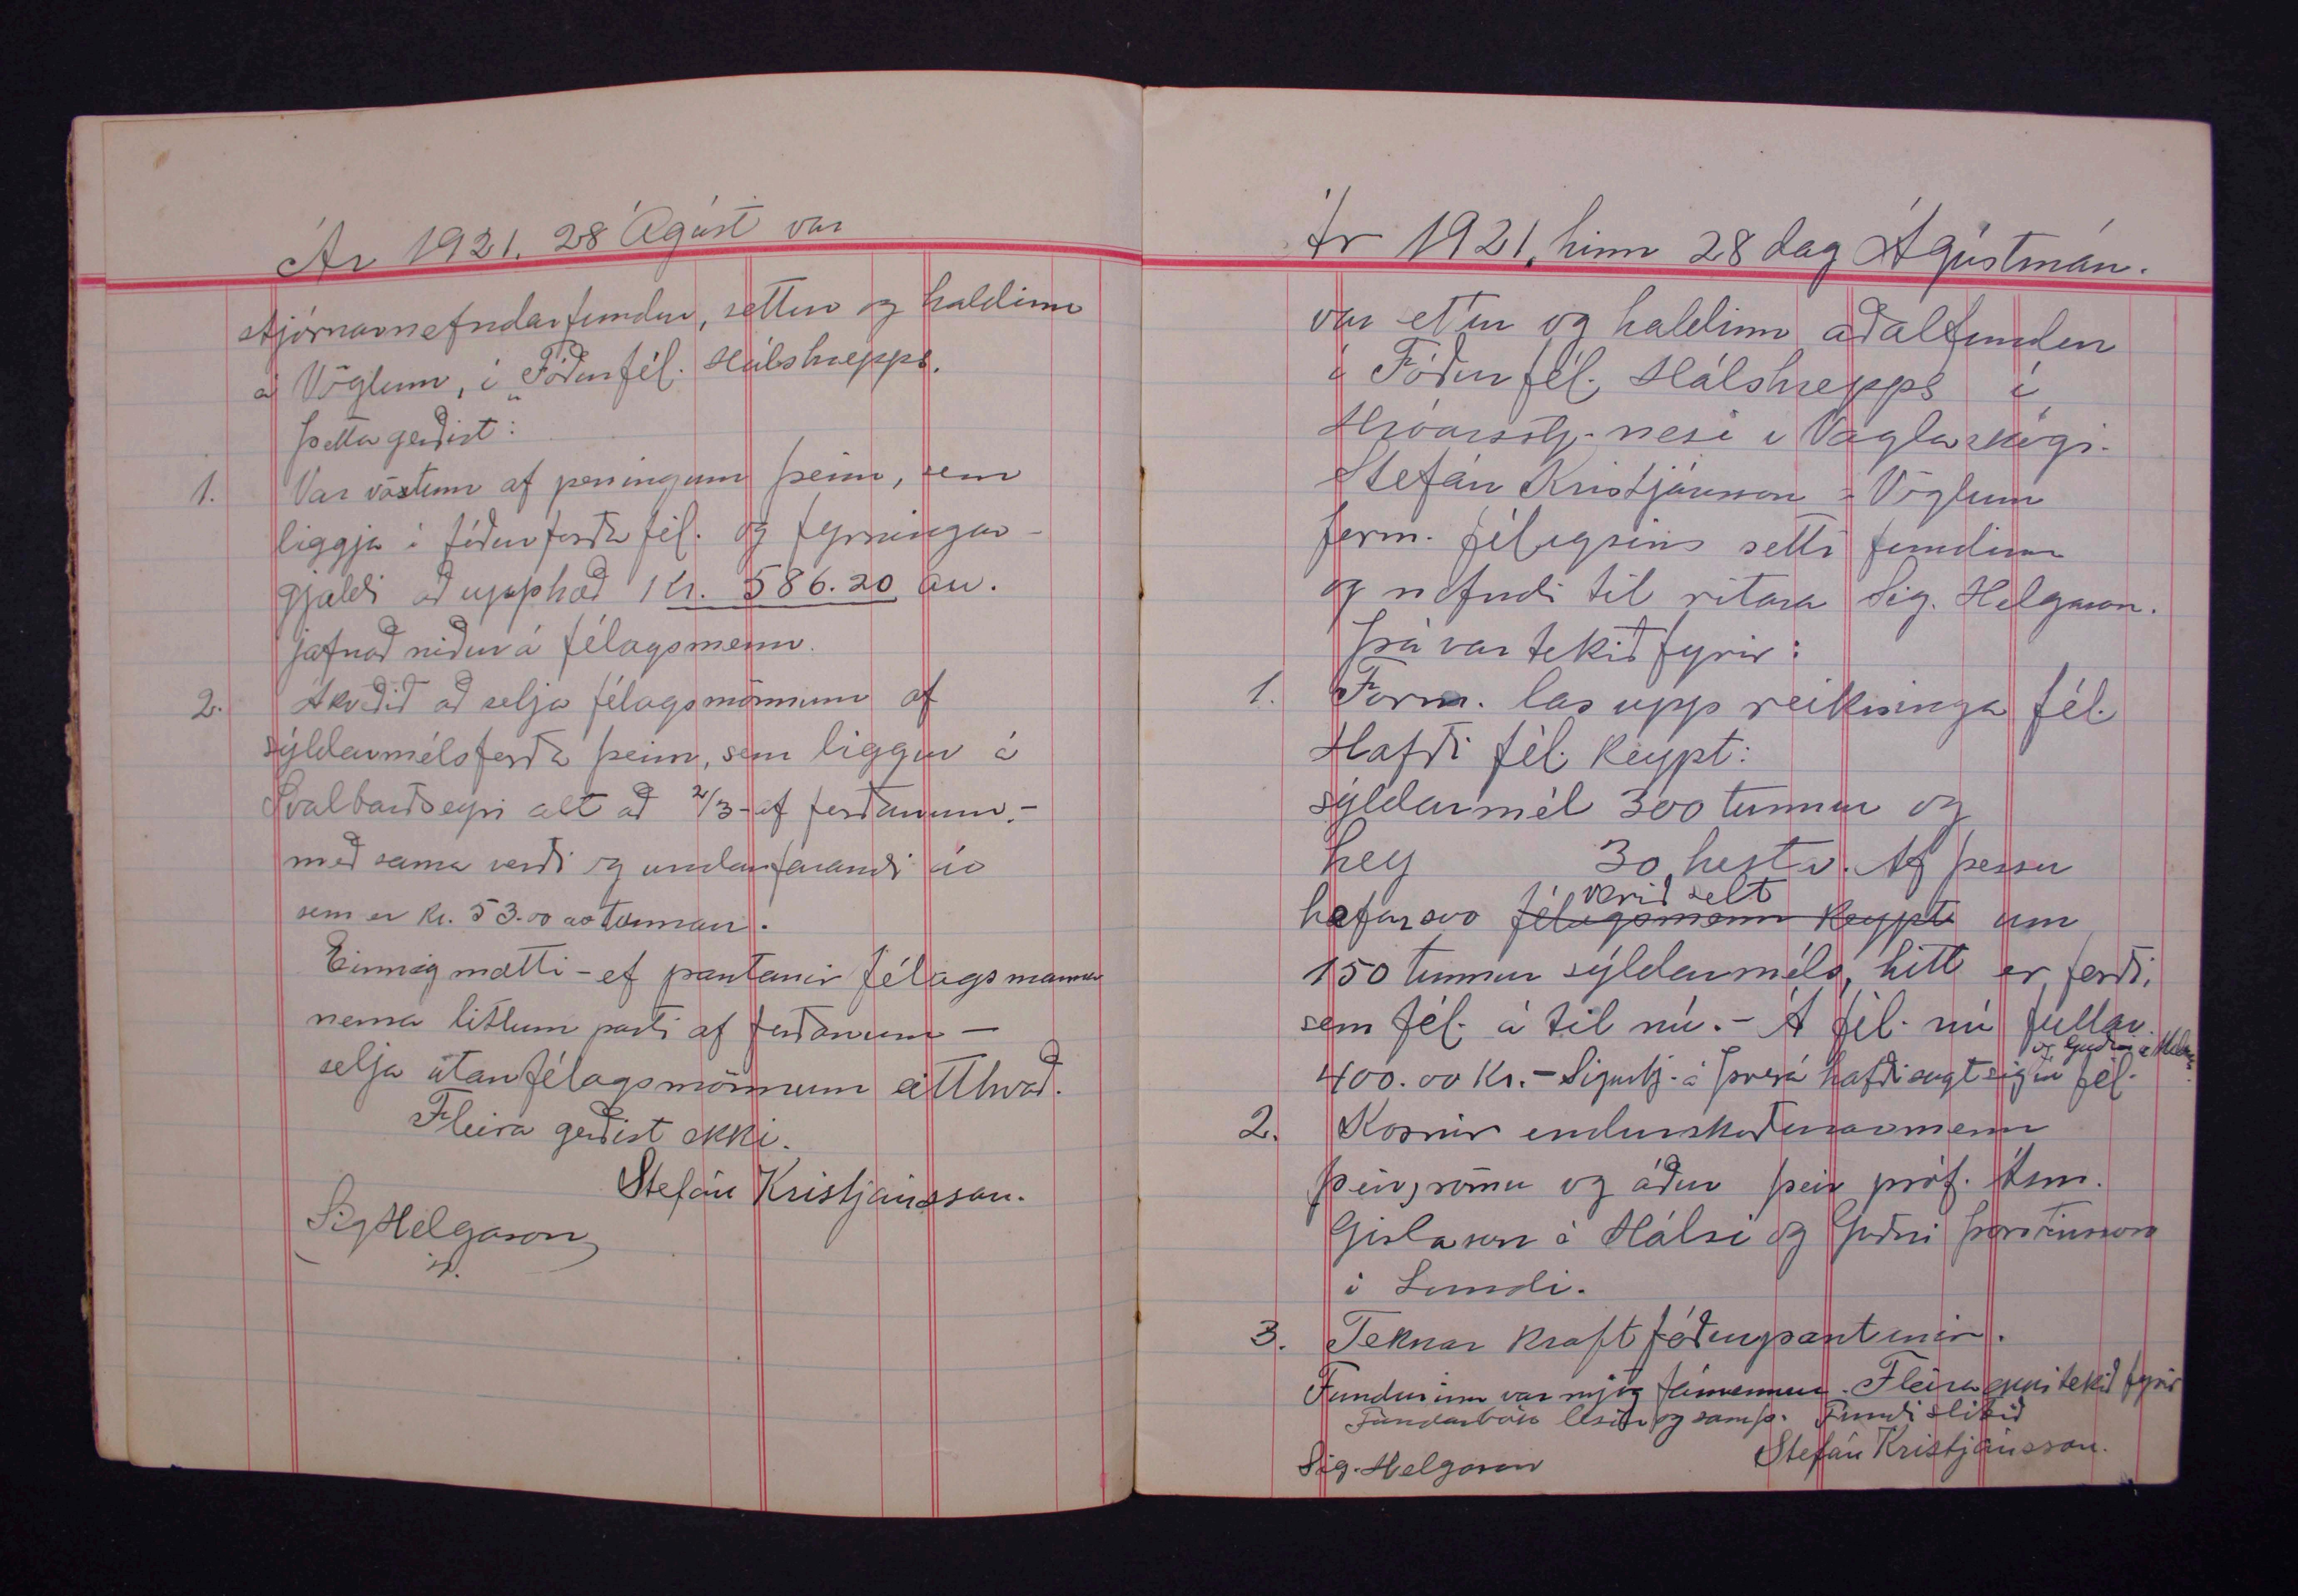 Ár 1921. 28 Ágúst var
stjórnarnefndarfundur, settur og haldinn
á Vöglum, í Fóðurfél. Hálshrepps.
Þetta gerðist:
1. Var vöxtum af peningum þeim, sem
liggja í fóðurforða fél. og fyrningar-
gjaldi að upphæð Kr. 586.20 au.
jafnað niður á félagsmenn.
2. Ákveðið að selja félagsmönnum af
sýldarmélsforða þeim, sem liggur á
Svalbarðseyri alt að 2/3 af forðanum. -
með sama verði og undanfarandi ár
sem er kr. 53.00 tunnan.
Einnig mætti - ef pantanir félagsmanna
nema litlum parti af forðanum -
selja utanfélagsmönnum eitthvað.
Fleira gerðist ekki.
Stefán Kristjánsson.
Sig Helgason
Ár 1921, hinn 28 dag Ágústmán.
var ettur og haldinn aðalfundur
í Fóðurfél. Hálshrepps í
Hróarsstj.nesi í Vaglaskógi.
Stefán Kristjánsson á Vöglum
form. félagsins setti fundinn
og nefndi til ritara Sig. Helgason.
Þá var tekið fyrir:
1. Form. las upp reikninga fél.
Hafði fél. keypt:
sýldarmél 300 tunnur og
hey 30 hesta. Af þessu
verið selt
hefur svo félagsmenn keypt um
150 tunnur sýldarméls, hitt er forði,
sem fél. á til nú. - Á fél. nú fullar
og Guðni á Melum.
400.00 Kr. - Sigurbj. á Þverá hafði sagt sig úr fél.
2. Kosnir endurskoðunarmenn
þeir sömu og áður þeir próf. Ásm.
Gíslason á Hálsi og Guðni Þorsteinsson
í Lundi.
3. Teknar kraftfóðurpantanir.
Fundurinn var mjög fámennur. Fleira ekki tekið fyrir
Fundarbók lesin og samþ. Fundi slitið
Stefán Kristjánsson.
Sig. Helgason